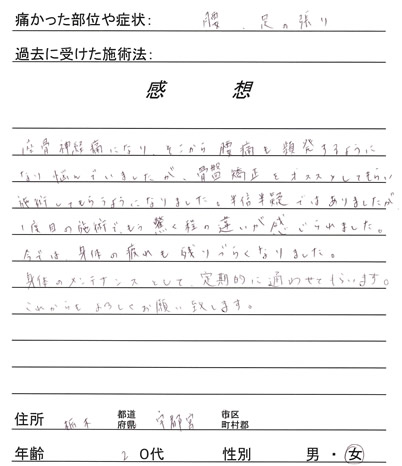 痛かった部位や症状: 腰、足の張り
過去に受けた施術法:
感想
坐骨神経痛になり、そこから腰痛も頻発するように
なり悩んでいましたが、骨盤矯正をオススメしてもらい
施術してもらうようになりました。半信半疑ではありましたが
1度目の施術で、もう驚く程の違いが感じられました。
今では身体の疲れも残りづらくなりました。
身体のメンテナンスとして、定期的に通わせてもらいます。
これからもよろしくお願い致します。
住所 栃木 都道府県 宇都宮 市区町村郡
年齢 20代 性別 男・女